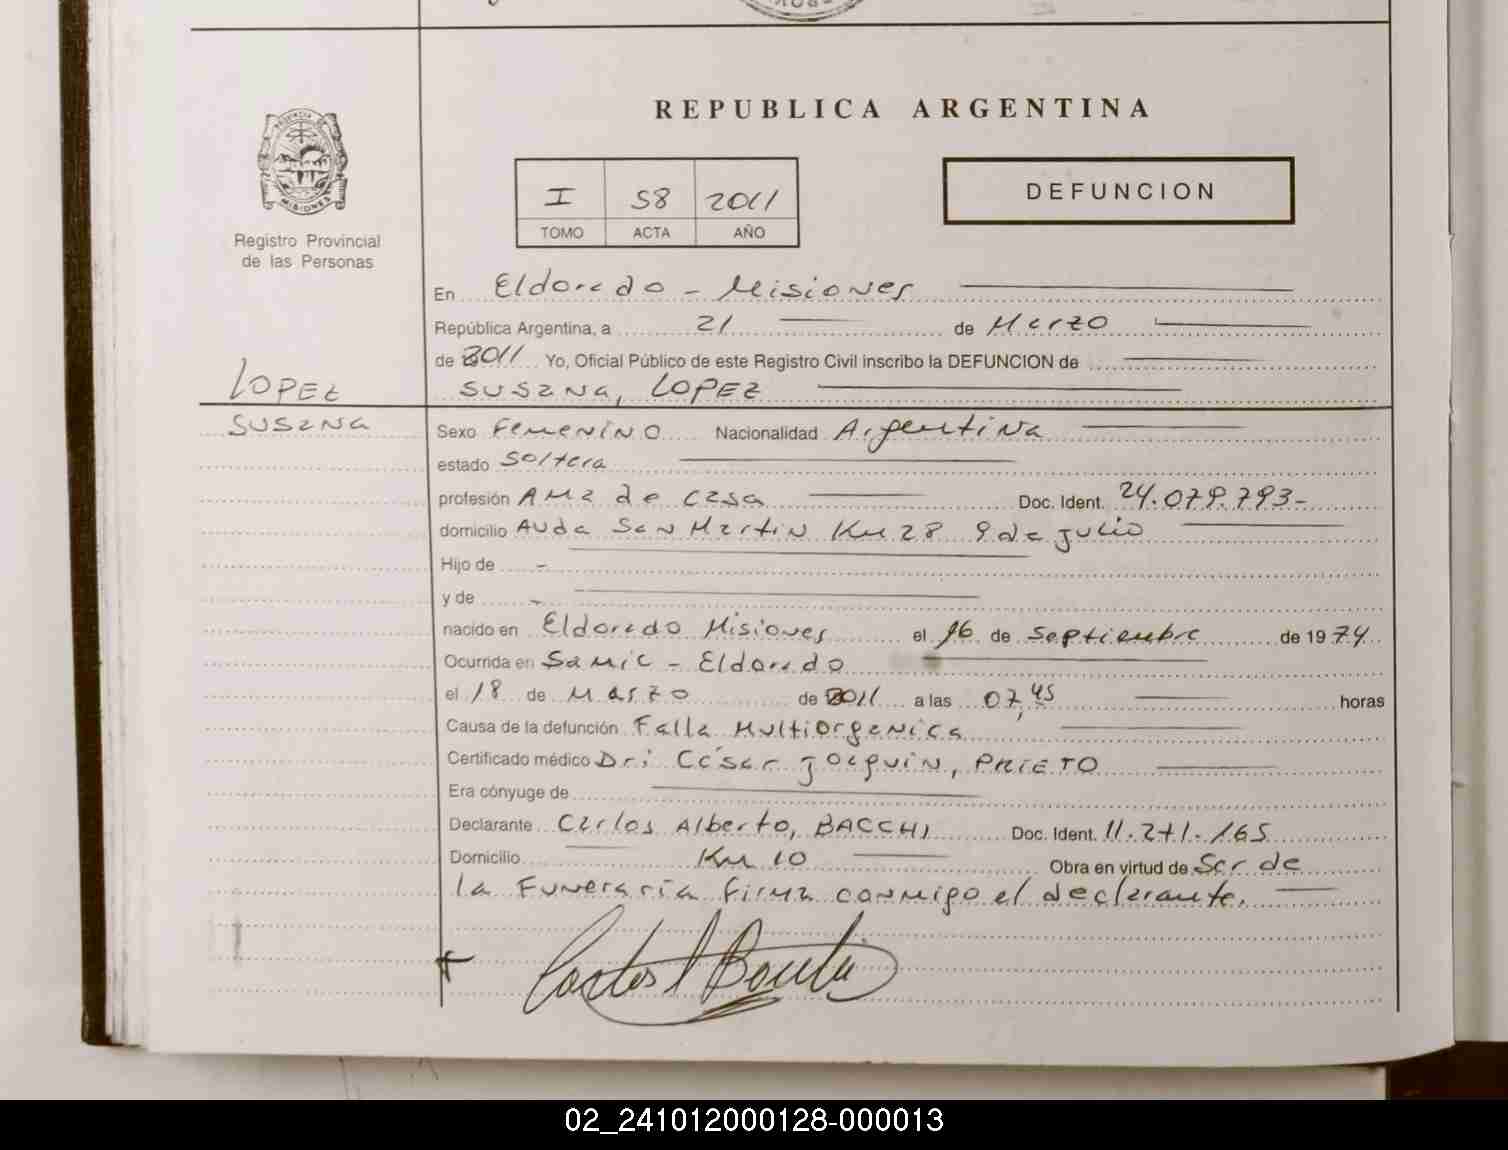 REPUBLICA ARGENTINA
I 58 2011
TOMO ACTA AÑO
DEFUNCION
PROVINCIA DE
MISIONES
Registro Provincial
de las Personas
En Eldorado - Misiones
República Argentina, a 21 de Marzo
de 2011 Yo, Oficial Público de este Registro Civil inscribo la DEFUNCION de
LOPEZ
SUSANA, LOPEZ
SUSANA
Sexo Femenino Nacionalidad Argentina
estado Soltera
profesión Ama de casa Doc. Ident. 24.079.793-
domicilio Avda San Martin Km 28 9 de julio
Hijo de -
y de -
nacido en Eldorado Misiones el 16 de Septiembre de 1974
Ocurrida en Samic - Eldorado
el 18 de Marzo de 2011 a las 07,45 horas
Causa de la defunción Falla Multiorganica
Certificado médico Dr: César Joaquin, PRIETO
Era cónyuge de
Declarante Carlos Alberto, BACCHI Doc. Ident. 11.271.165
Domicilio Km 10 Obra en virtud de Ser de
la Funeraria firma conmigo el declarante.
02_241012000128-000013